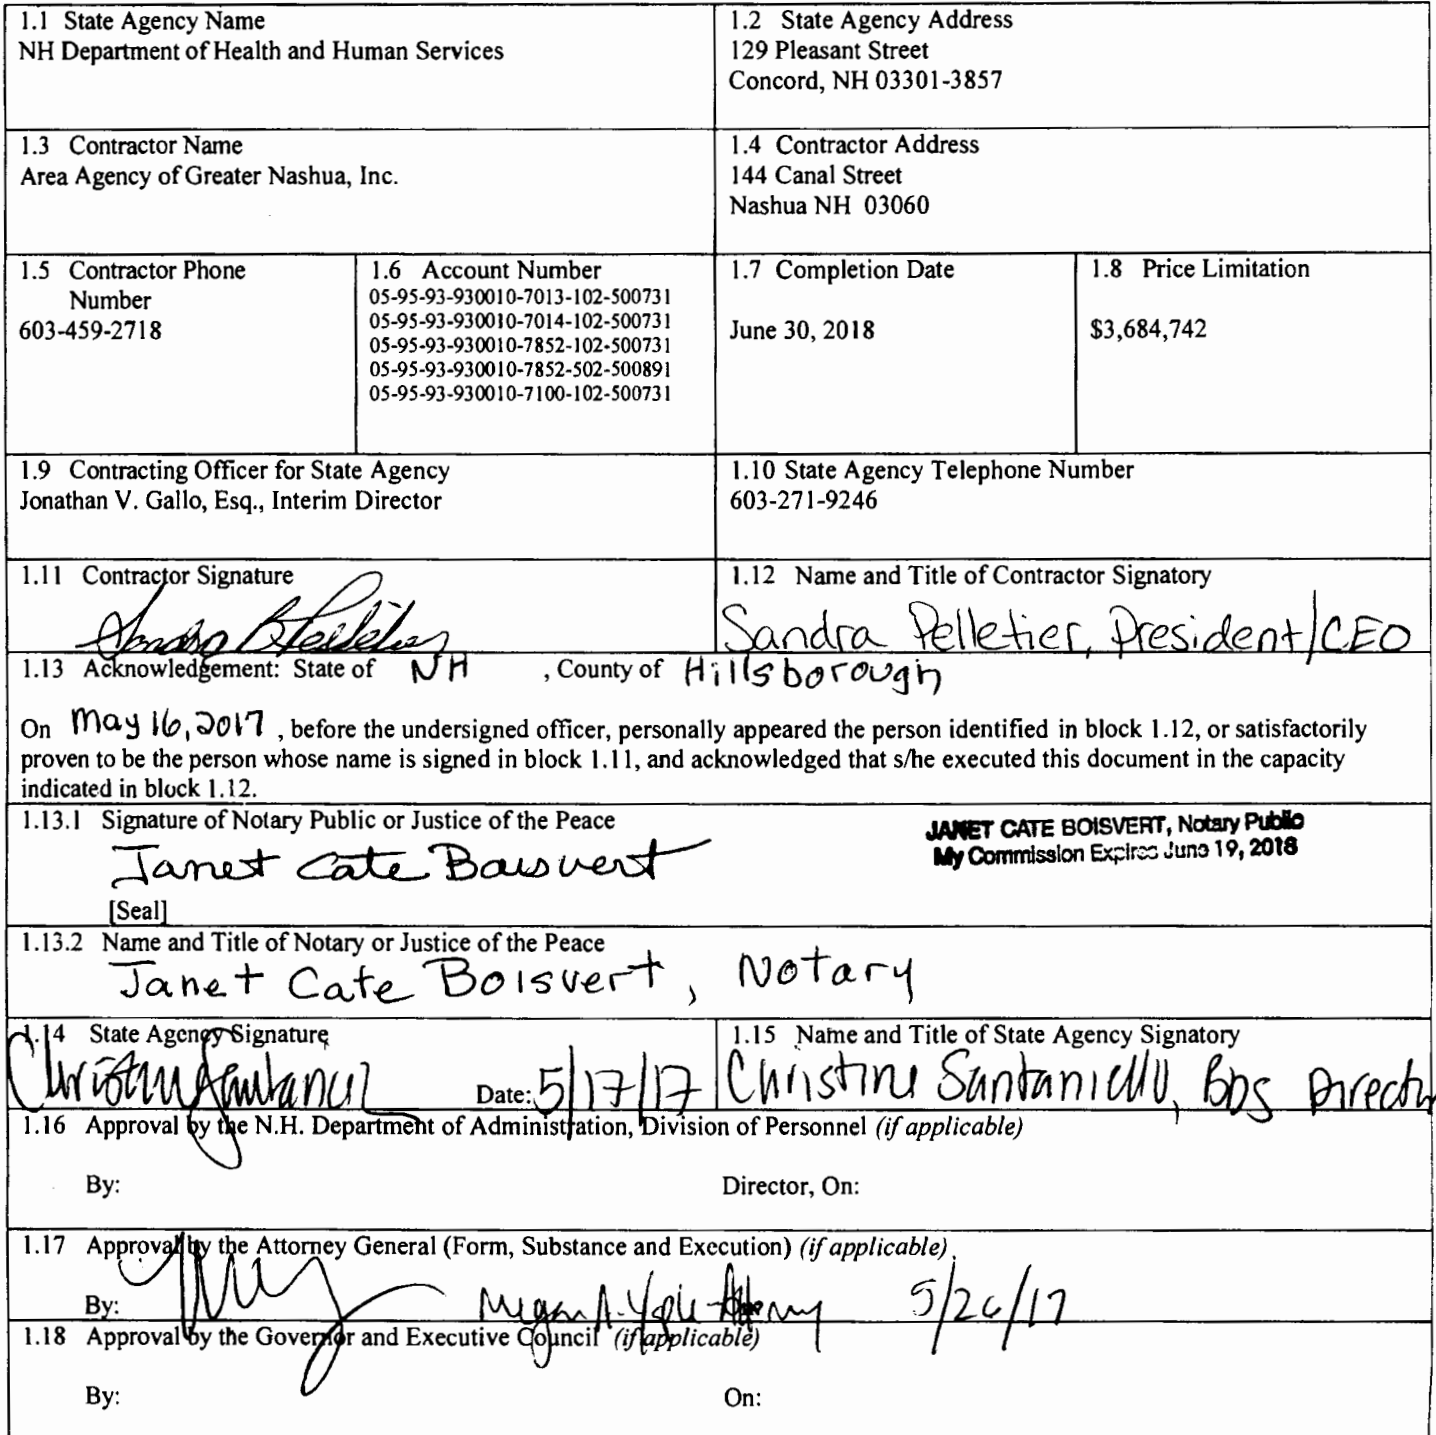 1.1 State Agency Name
NH Department of Health and Human Services
1.2 State Agency Address
129 Pleasant Street
Concord, NH 03301-3857
1.3 Contractor Name
Area Agency of Greater Nashua, Inc.
1.4 Contractor Address
144 Canal Street
Nashua NH 03060
1.5 Contractor Phone
Number
603-459-2718
1.6 Account Number
05-95-93-930010-7013-102-500731
05-95-93-930010-7014-102-500731
05-95-93-930010-7852-102-500731
05-95-93-930010-7852-502-500891
05-95-93-930010-7100-102-500731
1.7 Completion Date
June 30, 2018
1.8 Price Limitation
$3,684,742
1.9 Contracting Officer for State Agency
Jonathan V. Gallo, Esq., Interim Director
1.10 State Agency Telephone Number
603-271-9246
1.11 Contractor Signature
Sandra B Pelletier
1.12 Name and Title of Contractor Signatory
Sandra Pelletier, President/CEO
1.13 Acknowledgement: State of NH , County of Hillsborough
On May 16, 2017 , before the undersigned officer, personally appeared the person identified in block 1.12, or satisfactorily
proven to be the person whose name is signed in block 1.11, and acknowledged that s/he executed this document in the capacity
indicated in block 1.12.
1.13.1 Signature of Notary Public or Justice of the Peace
JANET CATE BOISVERT, Notary Public
My Commission Expires June 19, 2018
Janet Cate Boisvert
[Seal]
1.13.2 Name and Title of Notary or Justice of the Peace
Janet Cate Boisvert, Notary
1.14 State Agency Signature
Christine Santaniello Date: 5/17/17
1.15 Name and Title of State Agency Signatory
Christine Santaniello, BDS Director
1.16 Approval by the N.H. Department of Administration, Division of Personnel (if applicable)
By: Director, On:
1.17 Approval by the Attorney General (Form, Substance and Execution) (if applicable)
By: Megan A. - Attorney 5/26/17
1.18 Approval by the Governor and Executive Council (if applicable)
By: On: